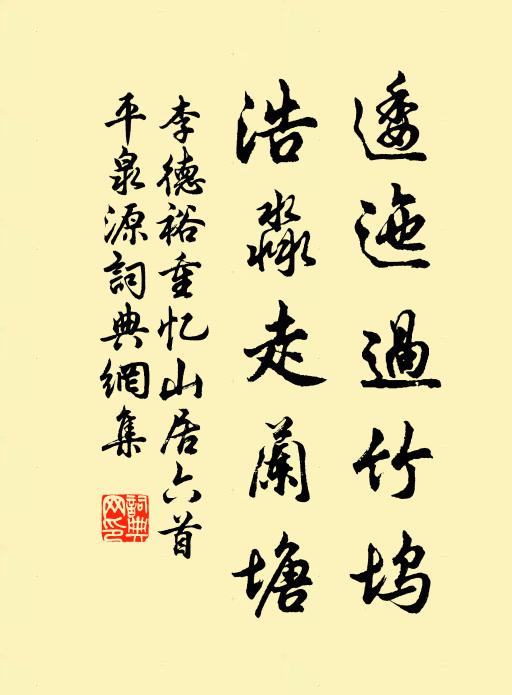 逶迤過竹坞
浩淼走蘭塘
李德裕重忆山居六首
平泉源詞典網集
詞典
网印